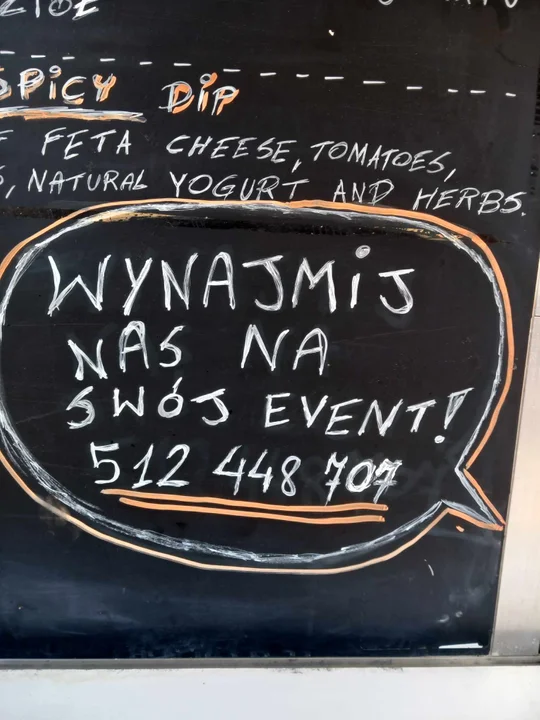 SPICY DIP
FETA CHEESE, TOMATOES,
NATURAL YOGURT AND HERBS.
WYNAJMIJ
NAS NA
SWÓJ EVENT!
512 448 707